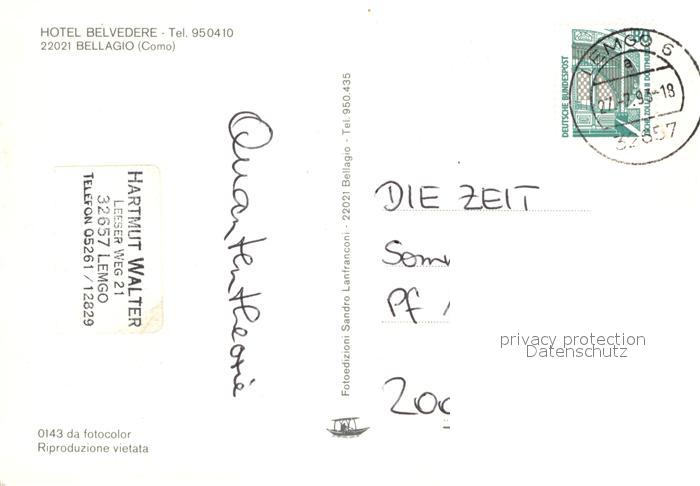 HOTEL BELVEDERE - Tel. 950410
22021 BELLAGIO (Como)
HARTMUT WALTER
LEESER WEG 21
32657 LEMGO
TELEFON 05261/12829
Quantentheorie
Fotoedizioni Sandro Lanfranconi - 22021 Bellagio - Tel. 950.435
0143 da fotocolor
Riproduzione vietata
DEUTSCHE BUNDESPOST
LEMGO 6
a
27.-7.93-18
32657
DIE ZEIT
Som
Pf
200
privacy protection
Datenschutz